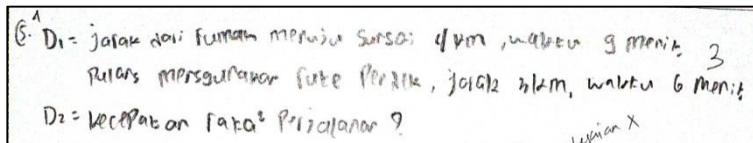 5. D1 = jarak dari rumah menuju sungai 4 km, waktu 9 menit 3
pulang menggunakan rute pendek, jarak 3 km, waktu 6 menit
D2 = kecepatan rata² perjalanan ?